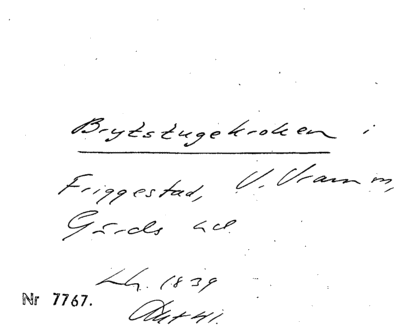 Brytstugekroken i
Friggestad, V. Vram m,
Gärds hd.
Lh. 1839
Nr 7767.